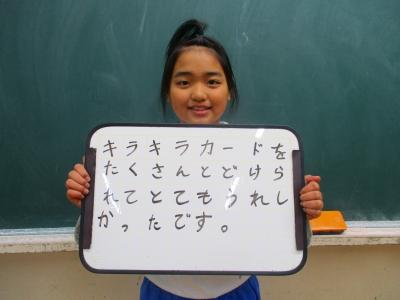 キラキラカードを
たくさんとどけら
れてとてもうれし
かったです。